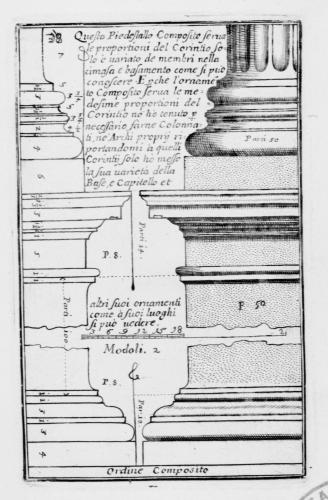 Questo Piedestallo Composito serua
le proportioni del Corintio so
lo è uariato de membri nella
cimasa e basamento come si può
conoscere E pchè l'orname
to Composito serua le me-
desime proportioni del
Corintio nō ho tenuto p
necessario farne Colonna-
ti, ne Archi proprij ri
portandomi à quelli
Corintij solo ho messo
la sua uarietà della
Base, e Capitello et
altri suoi ornamenti
come à suoi luoghi
si può uedere
Parti 50
Parti 14
P. 8.
P 50
Parti 100
3 6 9 12 15 18
Modoli. 2
P. 8.
Parti 12
Ordine Composito